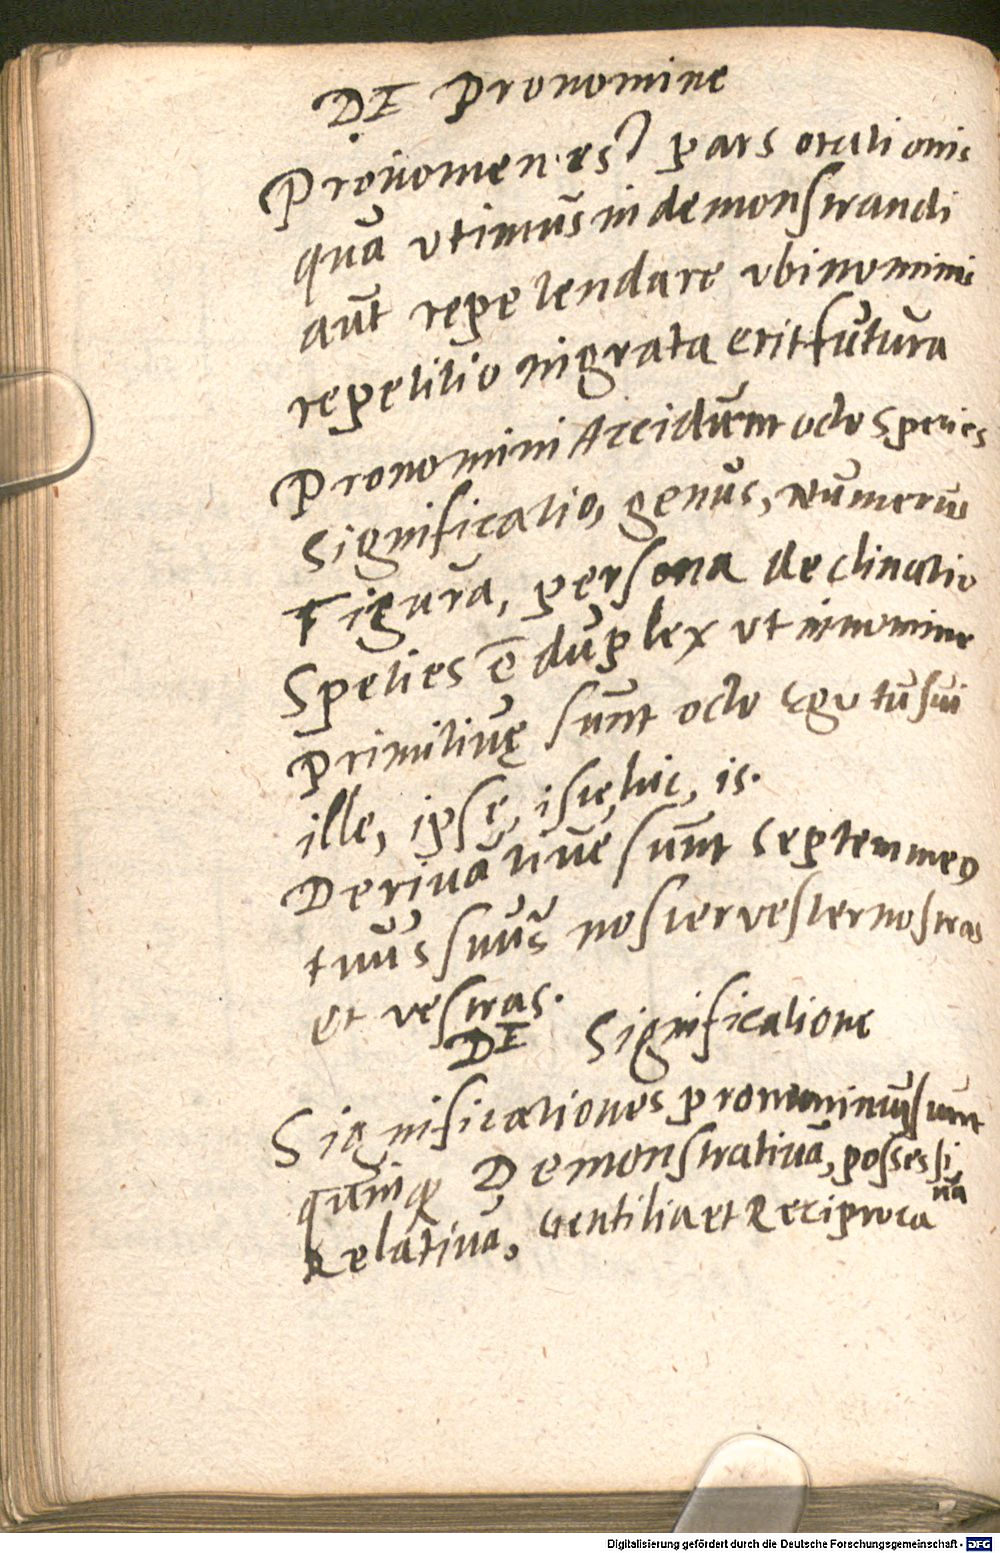 DE Pronomine
Pronomen est pars orationis
qua utimur in demonstrandi
aut repetenda re ubi nominis
repetitio ingrata erit futura
Pronomini Accidunt octo Species
Significatio, genus, Numerus
Figura, persona declinatio
Speties ē duplex ut in nomine
primitivę sunt octo Ego tu sui
ille, ipse, iste, hic, is.
Derivativae sunt septem meus
tuus suus noster vester nostras
et vestras.
DE Significatione
Significationes pronominum sunt
quinque Demonstrativa, possessi
va
Relativa, Gentilia et Reciproca
Digitalisierung gefördert durch die Deutsche Forschungsgemeinschaft - DFG